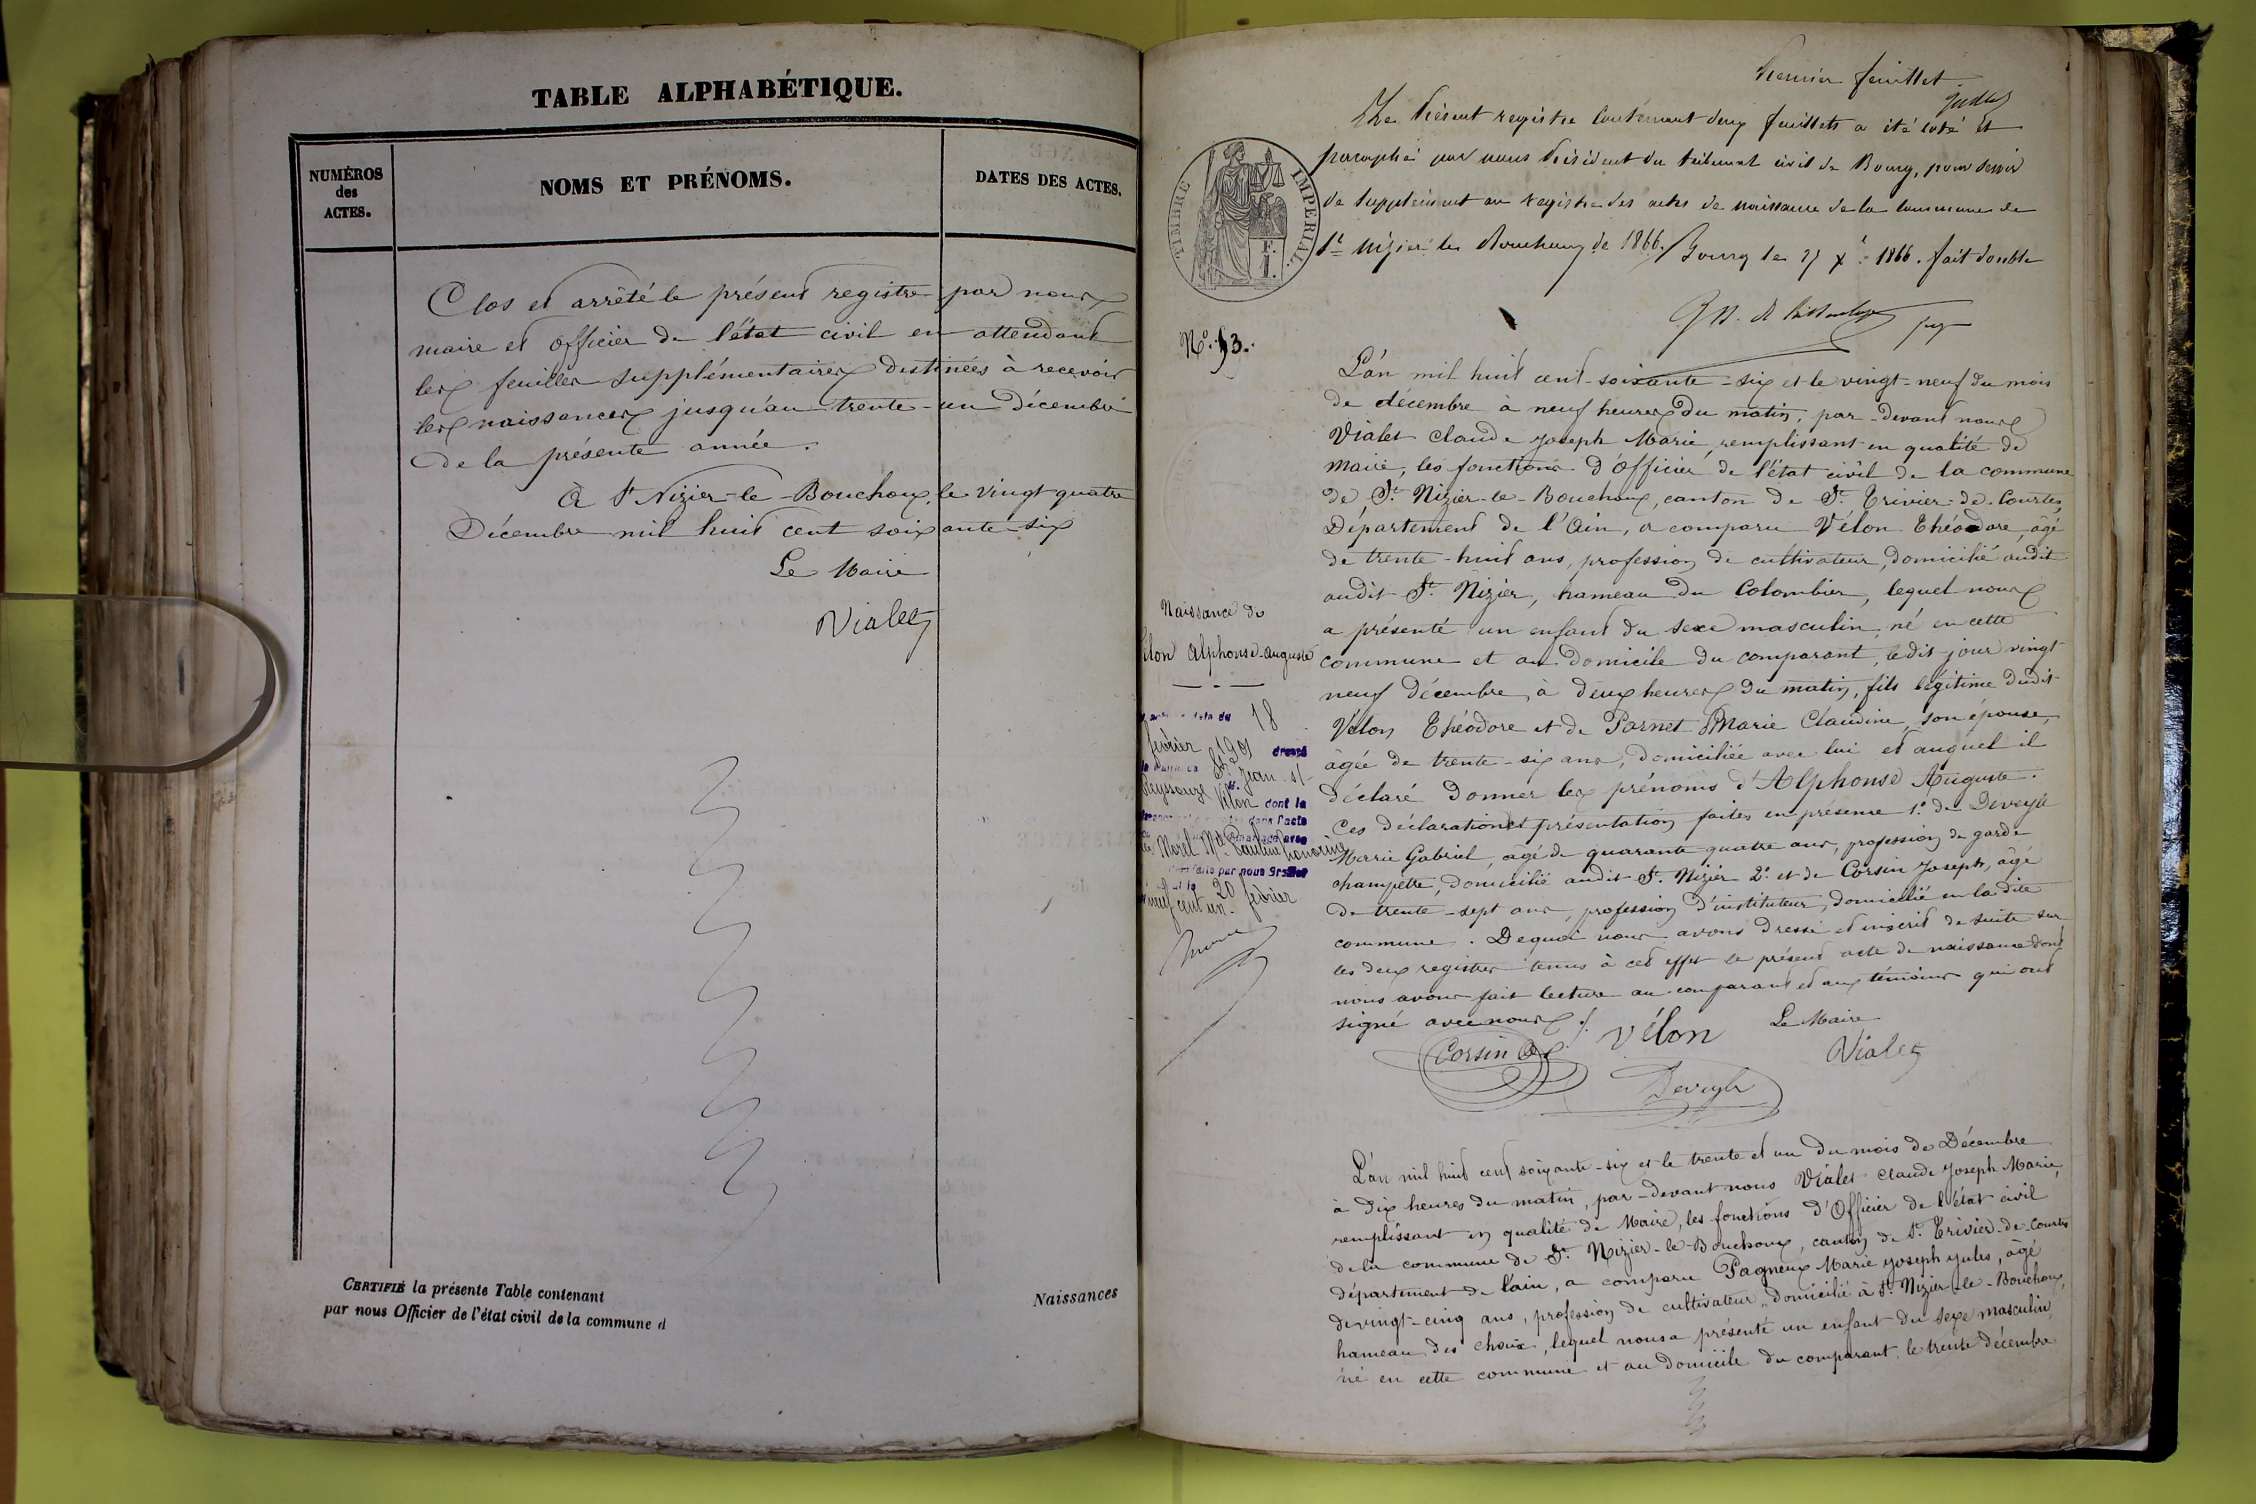 TABLE ALPHABÉTIQUE.
NUMÉROS
des
ACTES.
NOMS ET PRÉNOMS.
DATES DES ACTES.
Clos et arrêté le présent registre par nous
maire et officier de l'état civil en attendant
les feuilles supplémentaires destinées à recevoir
les naissances jusqu'au trente-un décembre
de la présente année.
À St Nizier-le-Bouchoux, le vingt quatre
Décembre mil huit cent soixante six
Le Maire
Vialet
CERTIFIÉ la présente Table contenant
par nous Officier de l'état civil de la commune d
Naissances
Premier feuillet
Le Présent registre contenant deux feuillets a été coté et
paraphé par nous Président du tribunal civil de Bourg, pour servir
de supplément au registre des actes de naissance de la commune de
St Nizier le Bouchoux de 1866. Bourg le 27 Xe 1866. fait double
TIMBRE IMPERIAL.
F.
1.
No. 53.
L'an mil huit cent-soixante-six et le vingt-neuf du mois
de décembre à neuf heures du matin, par-devant nous
Vialet Claude Joseph Marie, remplissant en qualité de
Maire, les fonctions d'officier de l'état civil de la commune
de St Nizier-le-Bouchoux, canton de St Trivier-de-Courtes,
Département de l'Ain, a comparu Vélon Théodore, âgé
de trente-huit ans, profession de cultivateur, domicilié audit
audit St Nizier, hameau du Colombier, lequel nous
a présenté un enfant du sexe masculin, né en cette
commune et au domicile du comparant, ledit jour vingt
neuf décembre, à deux heures du matin, fils légitime dudit
Vélon Théodore et de Parnet Marie Claudine, son épouse,
âgée de trente-six ans, domiciliée avec lui et auquel il
déclaré donner les prénoms d'Alphonse Auguste.
Ces déclaration et présentation faites en présence 1o de Deveyle
Marie Gabriel, âgé de quarante quatre ans, profession de garde
champêtre, domicilié audit St Nizier 2o et de Corsin Joseph, âgé
de trente-sept ans, profession d'instituteur, domicilié en la dite
commune. De quoi nous avons dressé et inscrit de suite sur
les deux registres tenus à cet effet le présent acte de naissance dont
nous avons fait lecture au comparant et aux témoins qui ont
signé avec nous /.
Corsin
Vélon
Le Maire
Vialet
Deveyle
Naissance de
Vélon Alphonse-Auguste
18
février 1901 dressé
St Jean s/
Reyssouze Vélon dont la
dans l'acte
avec
Morel Mie Pauline honorine
par nous Greffier
20 février
neuf cent un.
L'an mil huit cent soixante-six et le trente et un du mois de Décembre
à dix heures du matin, par-devant nous Vialet Claude Joseph Marie,
remplissant en qualité de Maire, les fonctions d'Officier de l'état civil
de la commune de St Nizier-le-Bouchoux, canton de St Trivier-de-Courtes
département de l'ain, a comparu Pagneux Marie Joseph Jules, âgé
de vingt-cinq ans, profession de cultivateur domicilié à St Nizier-le-Bouchoux,
hameau des choux, lequel nous a présenté un enfant du sexe masculin,
né en cette commune et au domicile du comparant le trente décembre